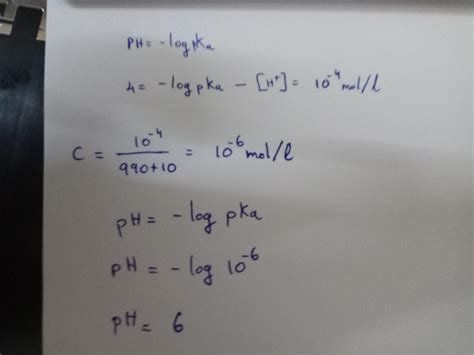 pH = -log pKa
4 = -log pKa - [H⁺] = 10⁻⁴ mol/l
C = 10⁻⁴ / 990+10 = 10⁻⁶ mol/l
pH = -log pKa
pH = -log 10⁻⁶
pH = 6